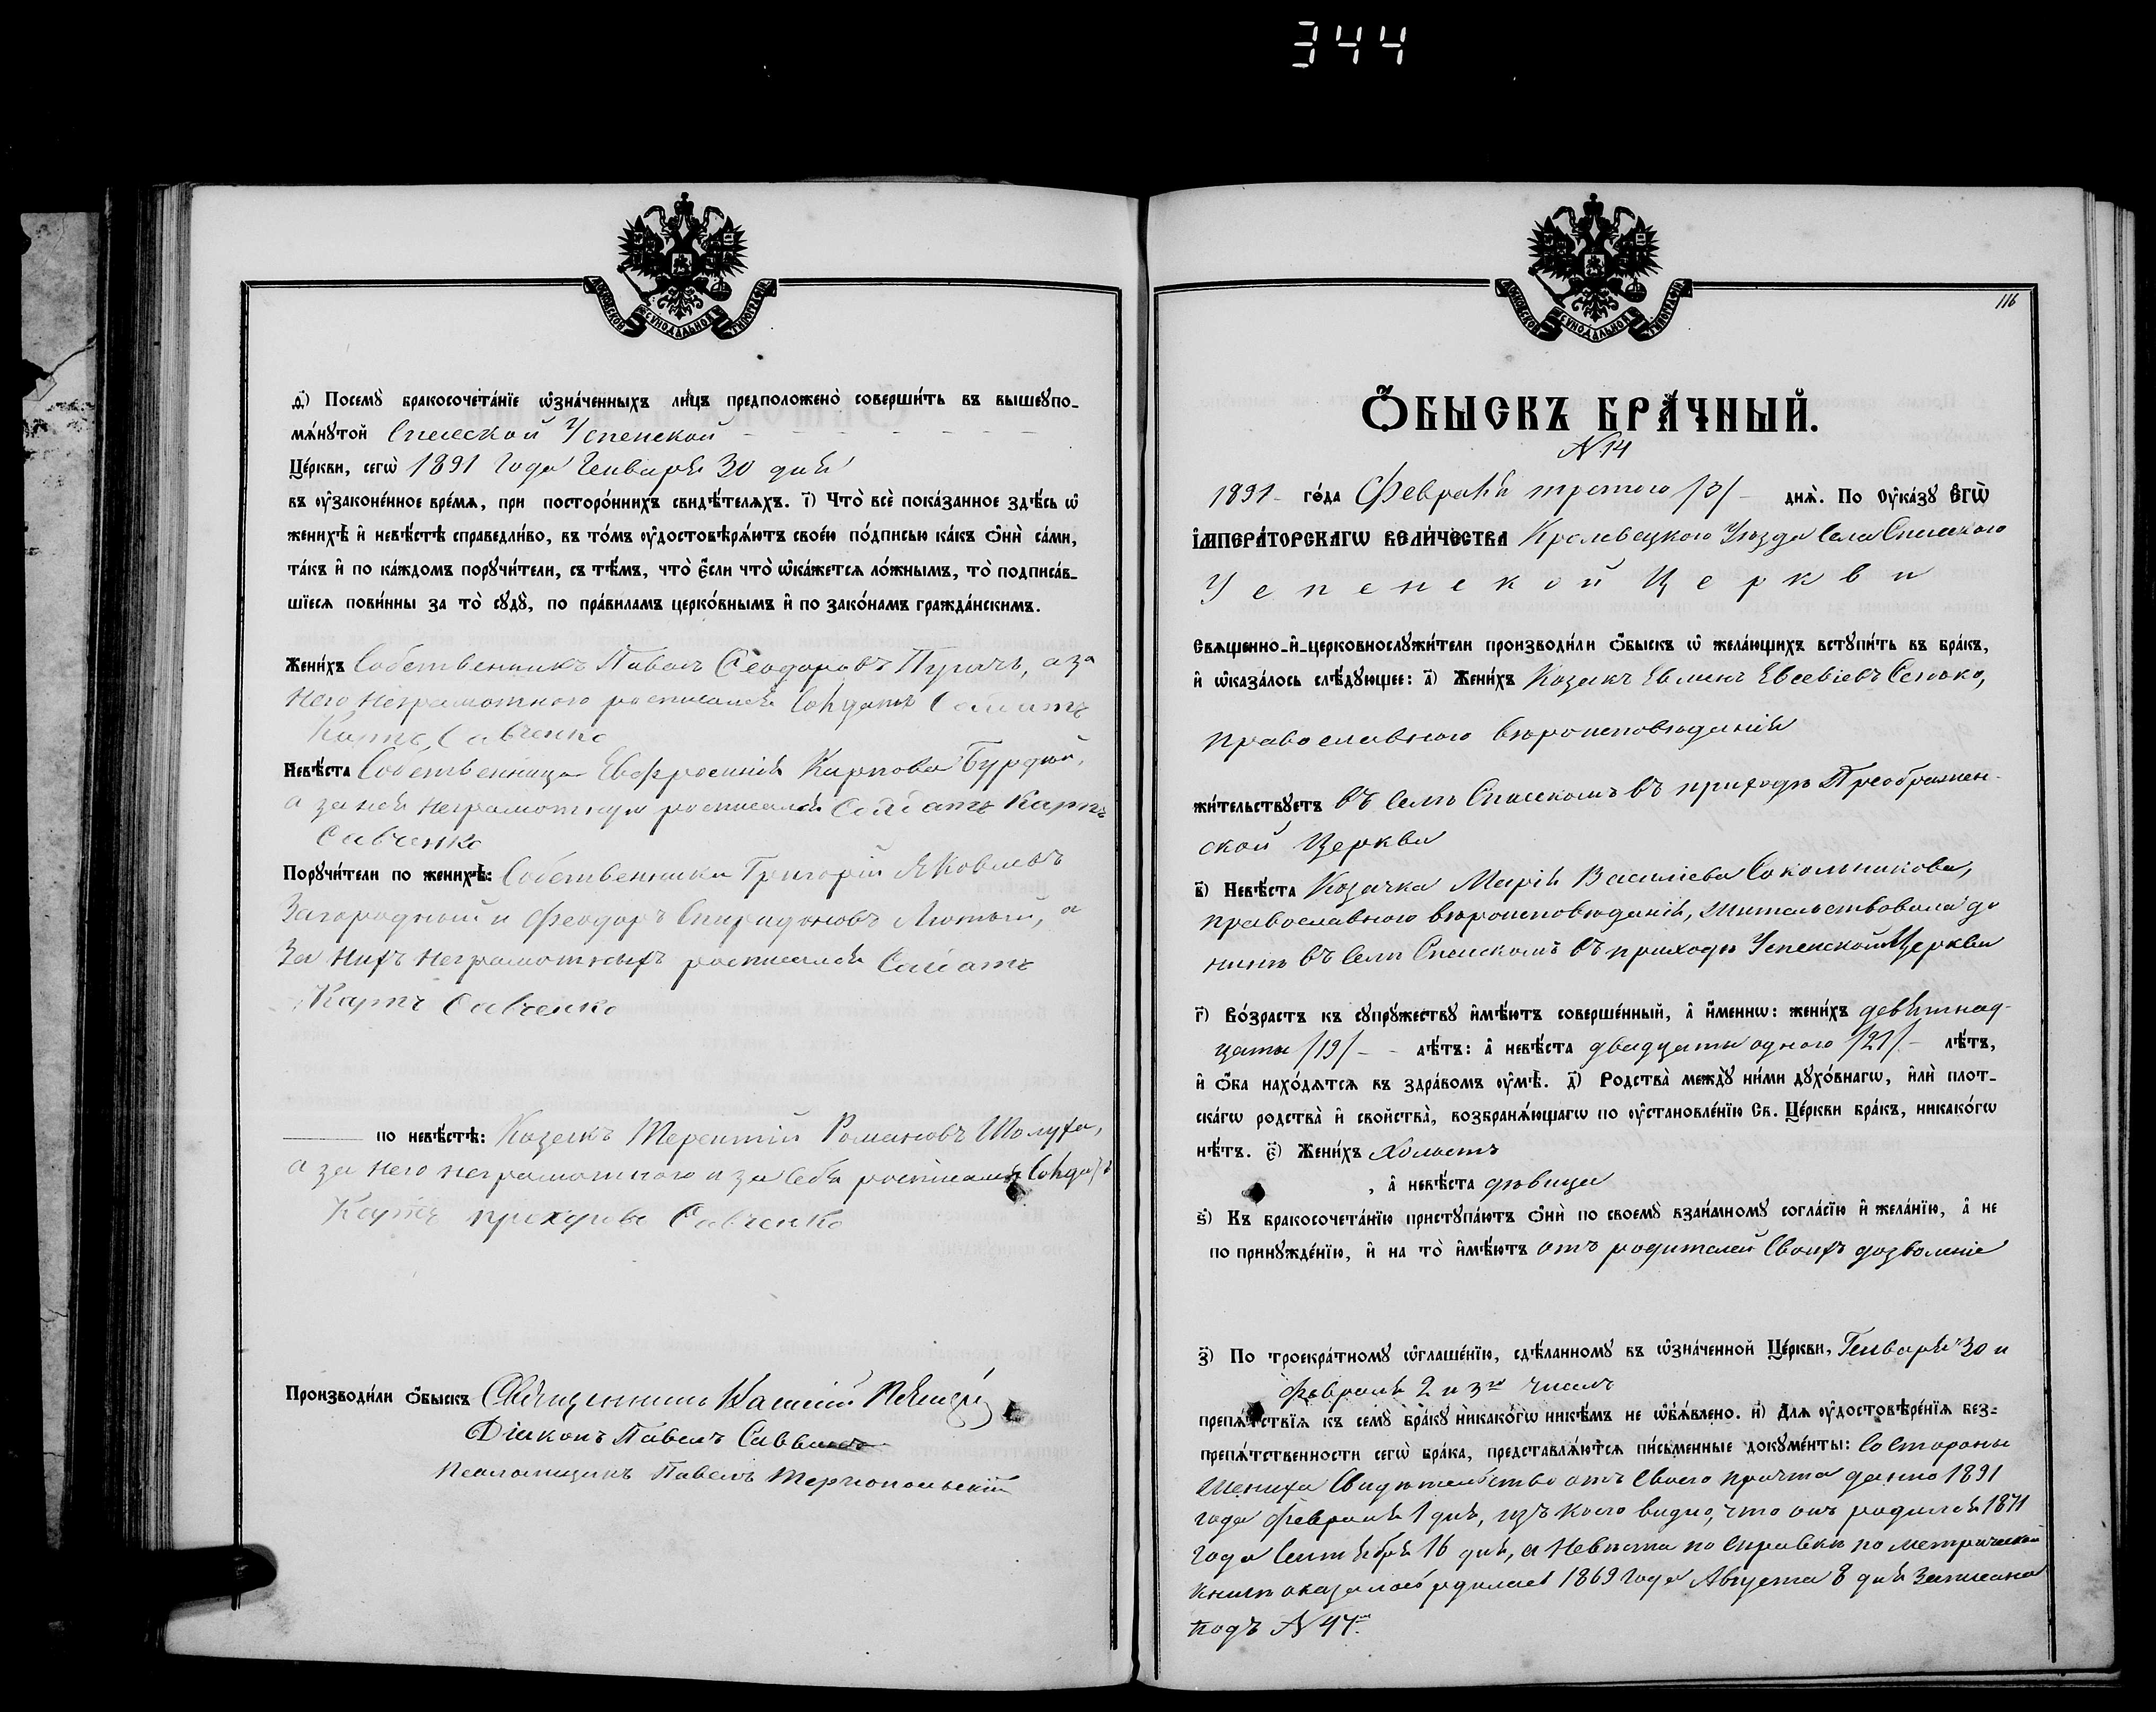 344
МОСКОВСКОЙ СѴНОДАЛЬНОЙ ТИПОГРАФІИ
д҃) Посемꙋ̀ бракосочета́нїе ѡ҆зна́ченныхъ ли́цъ предположено̀ соверши́ть въ вышеꙋпо-
мѧ́нꙋтой Спасской Успенской
Це́ркви, сегѡ̀ 1891 года Генваря 30 дня
въ ᲂу҆законе́нное вре́мѧ, при посторо́ннихъ свидѣ́телѧхъ. і҃) Что̀ всѐ пока́занное здѣ́сь ѡ҆
женихѣ̀ и҆ невѣ́стѣ справедли́во, въ то́мъ ᲂу҆достовѣрѧ́ютъ свое́ю по́дписью ка́къ ѻ҆нѝ са́ми,
та́къ и҆ по ка́ждомъ порꙋчи́тели, съ тѣ́мъ, что̀ є҆́сли что̀ ѡ҆ка́жетсѧ ло́жнымъ, то̀ подписа́в-
шїесѧ пови́нны за то̀ сꙋдꙋ̀, по пра́виламъ церко́внымъ и҆ по зако́намъ гражда́нскимъ.
Жени́хъ Собственникъ Павелъ Ѳеодоровъ Пугачъ, а за
него неграмотного росписался Солдатъ
Карпъ Савченко
Невѣ́ста Собственница Евфросинія Карпова Бурдюй,
а за нея неграмотную росписался Солдатъ Карпъ
Савченко
Порꙋчи́тели по женихѣ̀: Собственники Григорій Яковлевъ
Загородный и Феодоръ Спиридоновъ Лютый, а
за нихъ неграмотныхъ росписался Солдатъ
Карпъ Савченко
по невѣ́стѣ: Козакъ Терентій Романовъ Шолуха,
а за него неграмотного и за себя росписался Солдатъ
Карпъ Прохоровъ Савченко
Производи́ли ѻ҆́быскъ Священникъ
Діаконъ Павелъ Саввичъ
Псаломщикъ Павелъ Тернопольскій
МОСКОВСКОЙ СѴНОДАЛЬНОЙ ТИПОГРАФІИ
116
Ѻ҆́БЫСКЪ БРА́ЧНЫЙ.
N 14
1891 го́да Февраля третього /3/ днѧ̀. По ᲂу҆ка́зꙋ Є҆ГѠ̀
І҆МПЕРА́ТОРСКАГѠ ВЕЛИ́ЧЕСТВА Кролевецкого Уѣзда Села Спасского
Успенской Церкви
Свѧщенно-и҆-церковнослꙋжи́тели производи́ли ѻ҆́быскъ ѡ҆ жела́ющихъ встꙋпи́ть въ бра́къ,
и҆ ѡ҆каза́лось слѣ́дꙋющее: а҃) Жени́хъ Козакъ Евсевіевъ
православного вѣроисповѣданія
жи́тельствꙋетъ въ Селѣ Спасскомъ въ приходѣ Преображен-
ской Церкви
в҃) Невѣ́ста Козачка Марія Василіева Сокольникова,
православного вѣроисповѣданія, жительствовала до
нынѣ въ Селѣ Спасскомъ въ приходѣ Успенской Церкви
г҃) Во́зрастъ къ сꙋпрꙋ́жествꙋ и҆мѣ́ютъ соверше́нный, а҆ и҆́меннѡ: жени́хъ девятнад-
цать /19/ лѣ́тъ: а҆ невѣ́ста двадцать одного /21/ лѣ́тъ,
и҆ ѻ҆́ба нахо́дѧтсѧ въ здра́вомъ ᲂу҆мѣ̀. д҃) Родства̀ междꙋ̀ ни́ми дꙋхо́внагѡ, и҆лѝ плот-
ска́гѡ родства̀ и҆ свойства̀, возбранѧ́ющагѡ по ᲂу҆становле́нїю Св. Це́ркви бра́къ, никако́гѡ
нѣ́тъ. є҃) Жени́хъ Холостъ
, а҆ невѣ́ста дѣвица
ѕ҃) Къ бракосочета́нїю пристꙋпа́ютъ ѻ҆нѝ по своемꙋ̀ взаи́мномꙋ согла́сїю и҆ жела́нїю, а҆ не
по принꙋжде́нїю, и҆ на то̀ и҆мѣ́ютъ отъ родителей своихъ дозволеніе
з҃) По троекра́тномꙋ ѡ҆глаше́нїю, сдѣ́ланномꙋ въ ѡ҆зна́ченной Це́ркви, Генваря 30 и
Февраля 2 и 3го числъ
препѧ́тствїѧ къ семꙋ̀ бра́кꙋ никако́гѡ никѣ́мъ не ѡ҆б̾ѧ́влено. и҃) Длѧ ᲂу҆достовѣре́нїѧ без-
препѧ́тственности сегѡ̀ бра́ка, представлѧ́ютсѧ пи́сьменные докꙋме́нты: Со Стороны
Жениха Свидѣтельство отъ своего причта данно 1891
года Февраля 1 дня, изъ коего видно, что онъ родился 1871
года Сентября 16 дня, а Невѣста по справкѣ по метрической
книгѣ оказалось родилась 1869 года Августа 8 дня записана
подъ N 47м